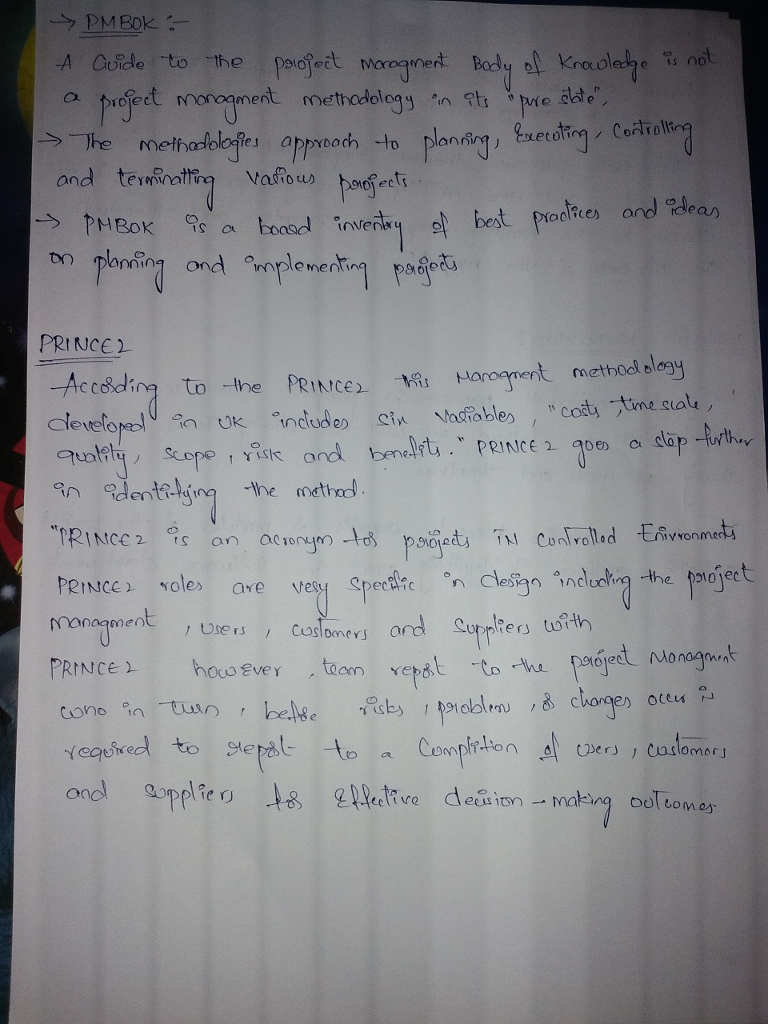 → PMBOK :-
A Guide to the project Managment Body of Knowledge is not
a project managment methodology in its "pure state",
→ The methodologies approach to planning, Executing, Controlling
and terminatting various projects.
→ PMBOK is a board inventry of best practices and ideas
on planning and implementing projects
PRINCE2
According to the PRINCE2 this Managment methodology
developed in UK includes six variables, "costs, time scale,
quality, scope, risk and benefits." PRINCE2 goes a step further
in identifying the method.
"PRINCE2 is an acronym for projects IN Controlled Enivronments
PRINCE2 roles are very specific in design including the project
managment, users, customers and suppliers with
PRINCE2 however, team report to the project Managment
who in turn, before risks, problem, or changes occur is
required to report to a Complition of users, customers
and suppliers for Effective decision-making outcomes.